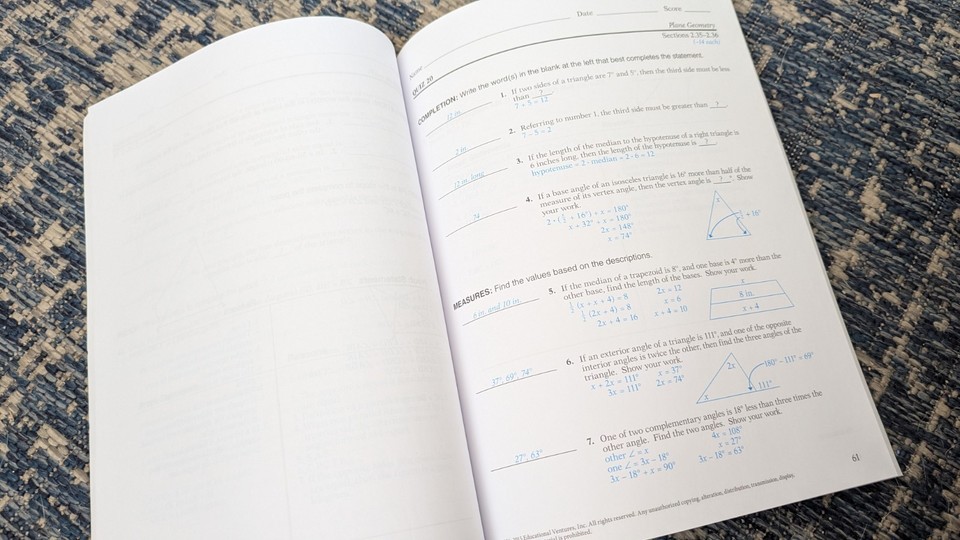 Name Date Score
Plane Geometry
QUIZ 20 Sections 2.35–2.36
(-14 each)
COMPLETION: Write the word(s) in the blank at the left that best completes the statement.
11 in. 1. If two sides of a triangle are 7" and 5", then the third side must be less
than ? .
7 + 5 = 12
2 in. 2. Referring to number 1, the third side must be greater than ? .
7 − 5 = 2
12 in. long 3. If the length of the median to the hypotenuse of a right triangle is
6 inches long, then the length of the hypotenuse is ? .
hypotenuse = 2 · median = 2 · 6 = 12
74 4. If a base angle of an isosceles triangle is 16° more than half of the
measure of its vertex angle, then the vertex angle is ? °. Show
your work.
2 · (x/2 + 16°) + x = 180°
x + 32° + x = 180°
2x = 148°
x = 74°
x
x/2 + 16°
MEASURES: Find the values based on the descriptions.
6 in. and 10 in. 5. If the median of a trapezoid is 8", and one base is 4" more than the
other base, find the length of the bases. Show your work.
1/2 (x + x + 4) = 8 2x = 12
1/2 (2x + 4) = 8 x = 6
2x + 4 = 16 x + 4 = 10
x
8 in.
x + 4
37°, 69°, 74° 6. If an exterior angle of a triangle is 111°, and one of the opposite
interior angles is twice the other, then find the three angles of the
triangle. Show your work.
x + 2x = 111° x = 37°
3x = 111° 2x = 74°
2x 180° − 111° = 69°
x 111°
27°, 63° 7. One of two complementary angles is 18° less than three times the
other angle. Find the two angles. Show your work.
other ∠ = x 4x = 108°
one ∠ = 3x − 18° x = 27°
3x − 18° + x = 90° 3x − 18° = 63°
61
Educational Ventures, Inc. All rights reserved. Any unauthorized copying, alteration, distribution, transmission, display,
is prohibited.